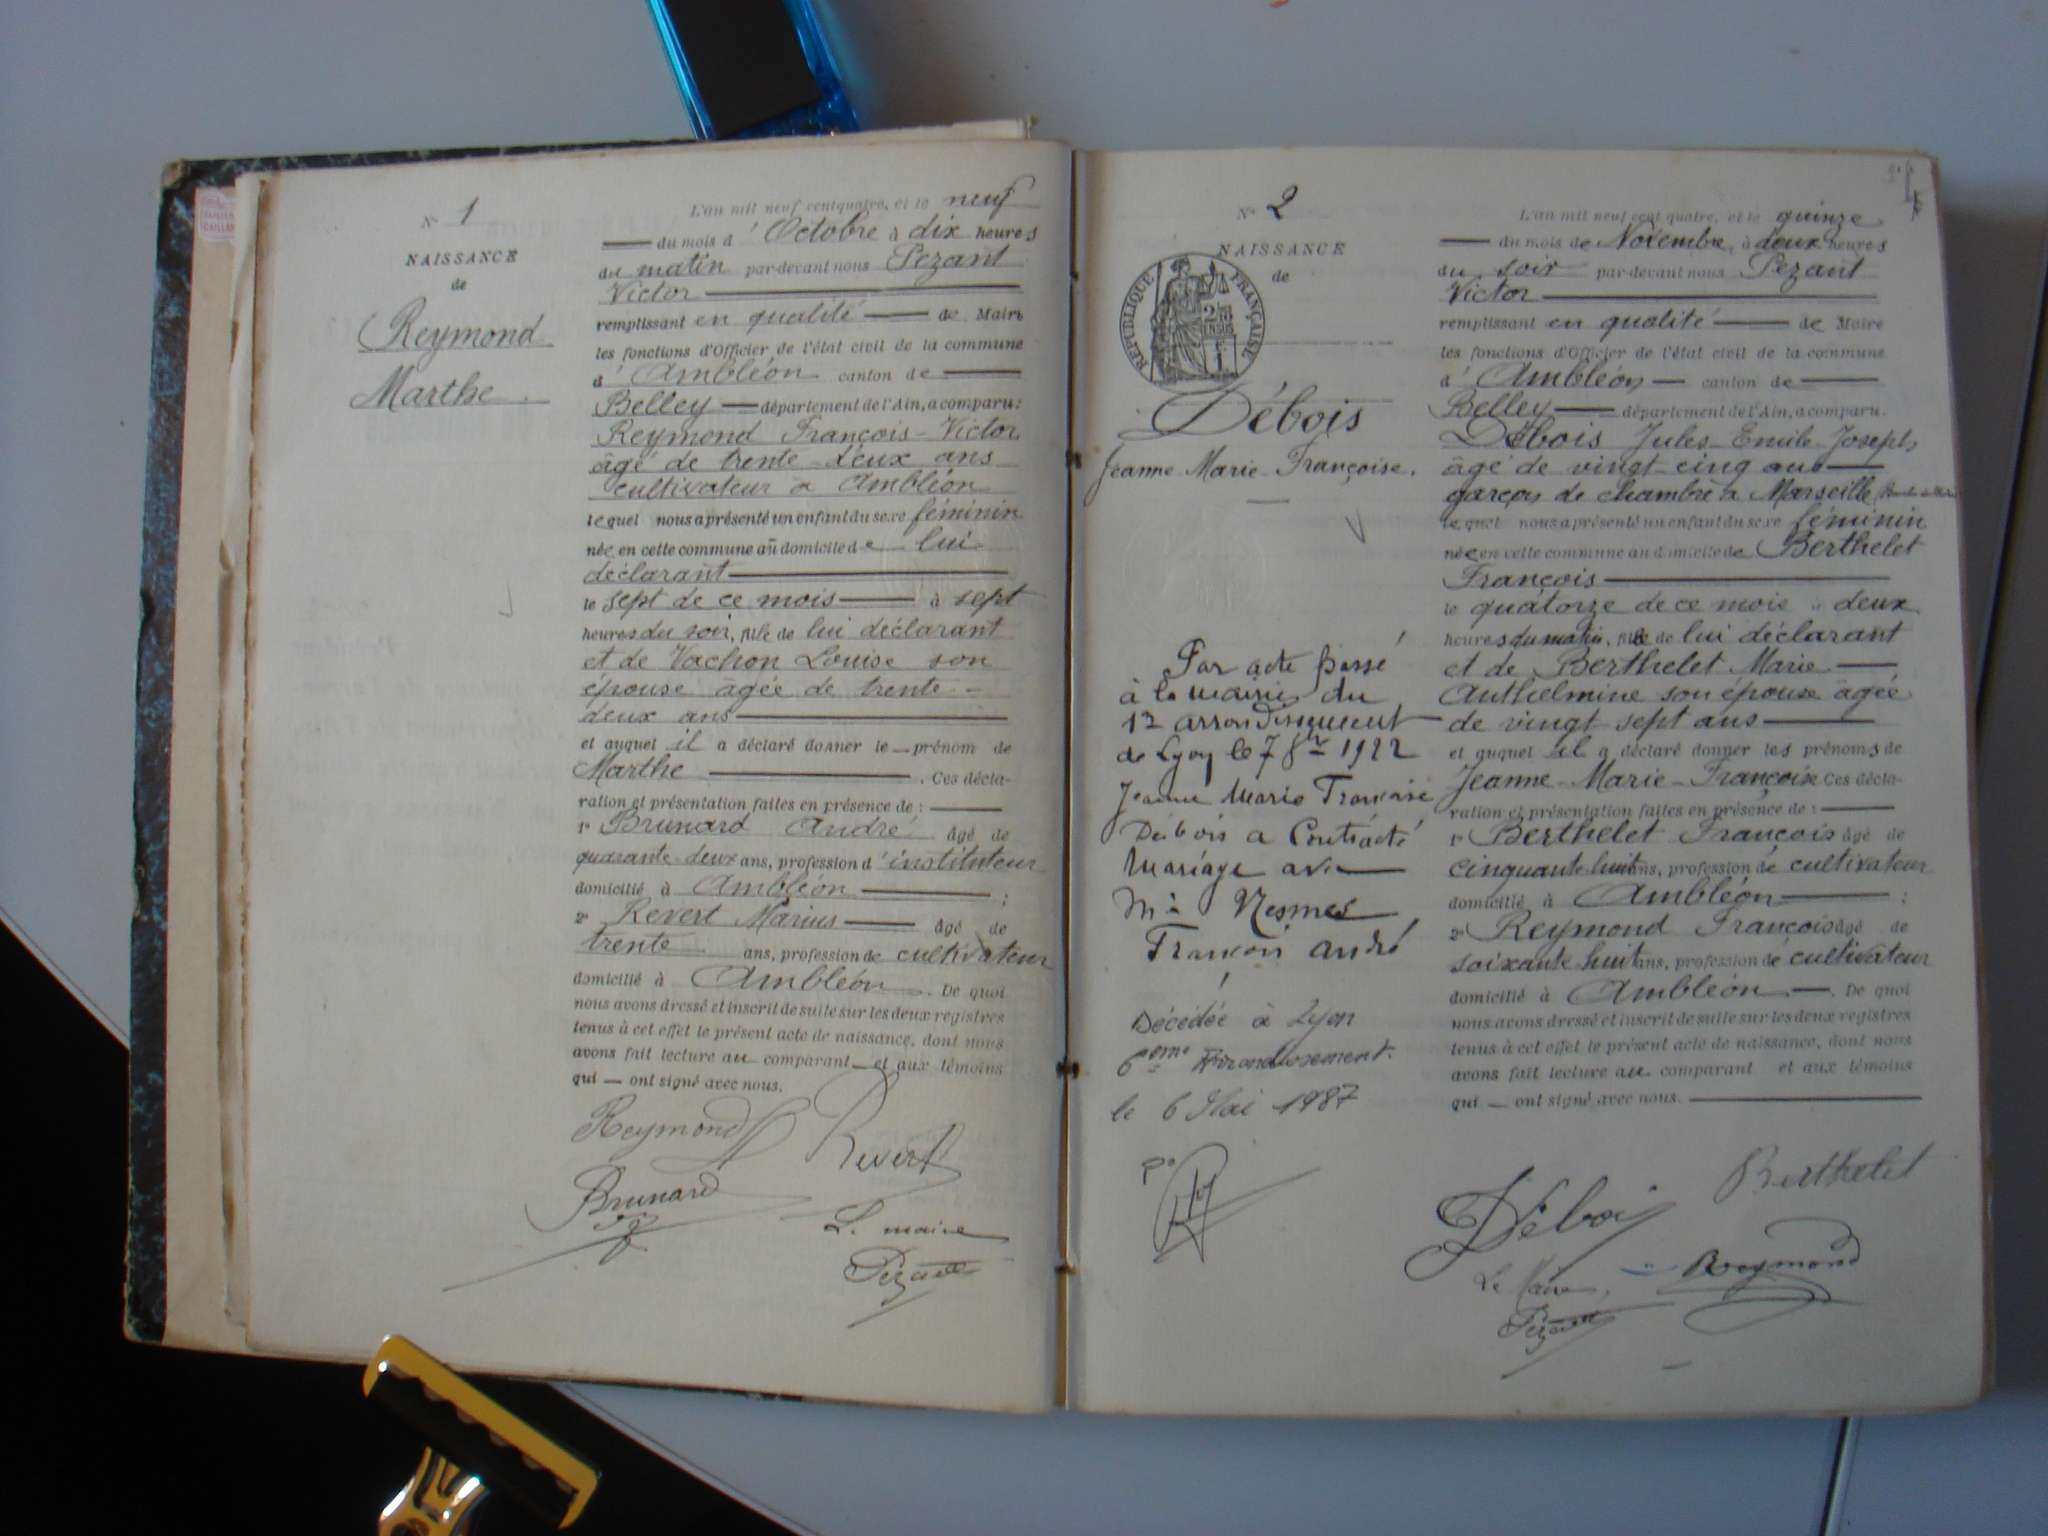 N° 1
NAISSANCE
de
Reymond
Marthe.
L'an mil neuf cent quatre, et le neuf
du mois d'Octobre à dix heures
du matin par-devant nous Pezant
Victor
remplissant en qualité de Maire
les fonctions d'Officier de l'état civil de la commune
d'Ambléon canton de
Belley département de l'Ain, a comparu:
Reymond François-Victor,
âgé de trente-deux ans
cultivateur à Ambléon
lequel nous a présenté un enfant du sexe féminin
née en cette commune au domicile de lui
déclarant
le sept de ce mois à sept
heures du soir, fille de lui déclarant
et de Vachon Louise son
épouse âgée de trente-
deux ans
et auquel il a déclaré donner le prénom de
Marthe. Ces décla-
ration et présentation faites en présence de:
1° Brunard André âgé de
quarante-deux ans, profession d'instituteur
domicilié à Ambléon;
2° Revert Marius âgé de
trente ans, profession de cultivateur
domicilié à Ambléon. De quoi
nous avons dressé et inscrit de suite sur les deux registres
tenus à cet effet le présent acte de naissance, dont nous
avons fait lecture au comparant et aux témoins
qui ont signé avec nous.
Reymond Revert
Brunard
Le maire
Pezant
N° 2
NAISSANCE
de
RÉPUBLIQUE FRANÇAISE
Débois
Jeanne-Marie-Françoise.
Par acte passé
à la mairie du
1er arrondissement
de Lyon le 7 8re 1922
Jeanne Marie Françoise
Débois a contracté
mariage avec
Mr Nesmes
François André
Décédée à Lyon
6ème Arrondissement.
le 6 Mai 1987
L'an mil neuf cent quatre, et le quinze
du mois de Novembre, à deux heures
du soir par-devant nous Pezant
Victor
remplissant en qualité de Maire
les fonctions d'Officier de l'état civil de la commune
d'Ambléon canton de
Belley département de l'Ain, a comparu.
Débois Jules-Emile-Joseph,
âgé de vingt-cinq ans
garçon de chambre à Marseille
lequel nous a présenté un enfant du sexe féminin
née en cette commune au domicile de Berthelet
François
le quatorze de ce mois à deux
heures du matin, fille de lui déclarant
et de Berthelet Marie
Anthelmine son épouse âgée
de vingt sept ans
et auquel il a déclaré donner les prénoms de
Jeanne-Marie-Françoise Ces décla-
ration et présentation faites en présence de:
1° Berthelet François âgé de
cinquante huit ans, profession de cultivateur
domicilié à Ambléon;
2° Reymond François âgé de
soixante huit ans, profession de cultivateur
domicilié à Ambléon. De quoi
nous avons dressé et inscrit de suite sur les deux registres
tenus à cet effet le présent acte de naissance, dont nous
avons fait lecture au comparant et aux témoins
qui ont signé avec nous.
Berthelet
Débois
Reymond
Le Maire,
Pezant